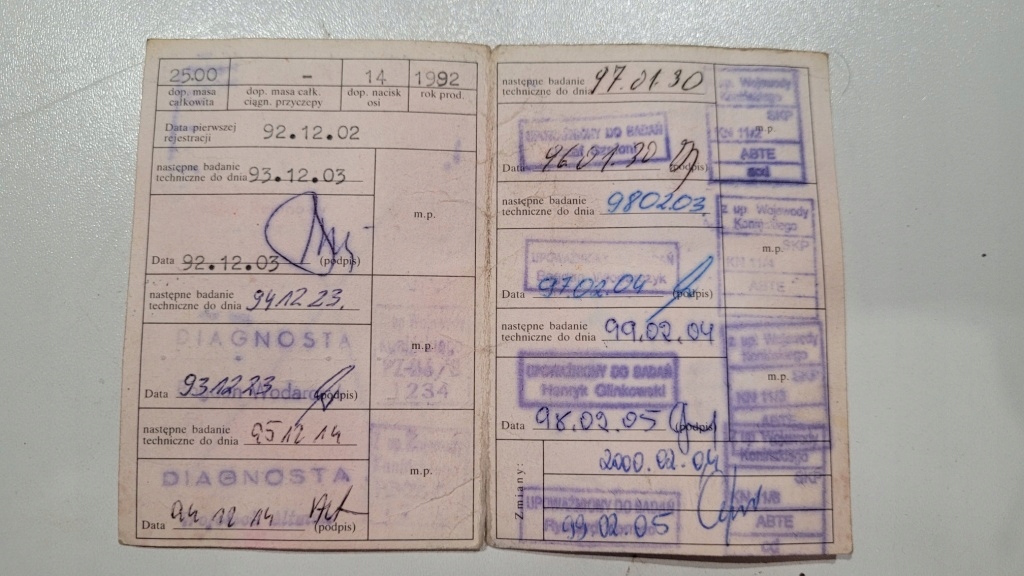 2500 - 14 1992
dop. masa całkowita
dop. masa całk. ciągn. przyczepy
dop. nacisk osi
rok prod.
Data pierwszej rejestracji 92.12.02
następne badanie
techniczne do dnia 93.12.03
m.p.
Data 92.12.03 (podpis)
następne badanie
techniczne do dnia 94.12.23.
DIAGNOSTA
m.p.
1234
Data 93.12.23 (podpis)
następne badanie
techniczne do dnia 95.12.14
DIAGNOSTA
m.p.
Data 94.12.14 (podpis)
następne badanie
techniczne do dnia 97.01.30
z up. Wojewody
Konińskiego
SKP
m.p.
KN 11/2
ABTE
UPOWAŻNIONY DO BADAŃ
Data 96.01.30 (podpis)
następne badanie
techniczne do dnia 980203.
z up. Wojewody
Konińskiego
SKP
m.p.
KN 11/4
ABTE
UPOWAŻNIONY DO BADAŃ
Data 97.02.04 (podpis)
następne badanie
techniczne do dnia 99.02.04
z up. Wojewody
Konińskiego
m.p. SKP
KN 11/3
ABTE
UPOWAŻNIONY DO BADAŃ
Henryk Glinkowski
Data 98.02.05 (podpis)
Zmiany:
2000.02.04
z up. Wojewody
Konińskiego
SKP
KN 11/8
ABTE
UPOWAŻNIONY DO BADAŃ
99.02.05